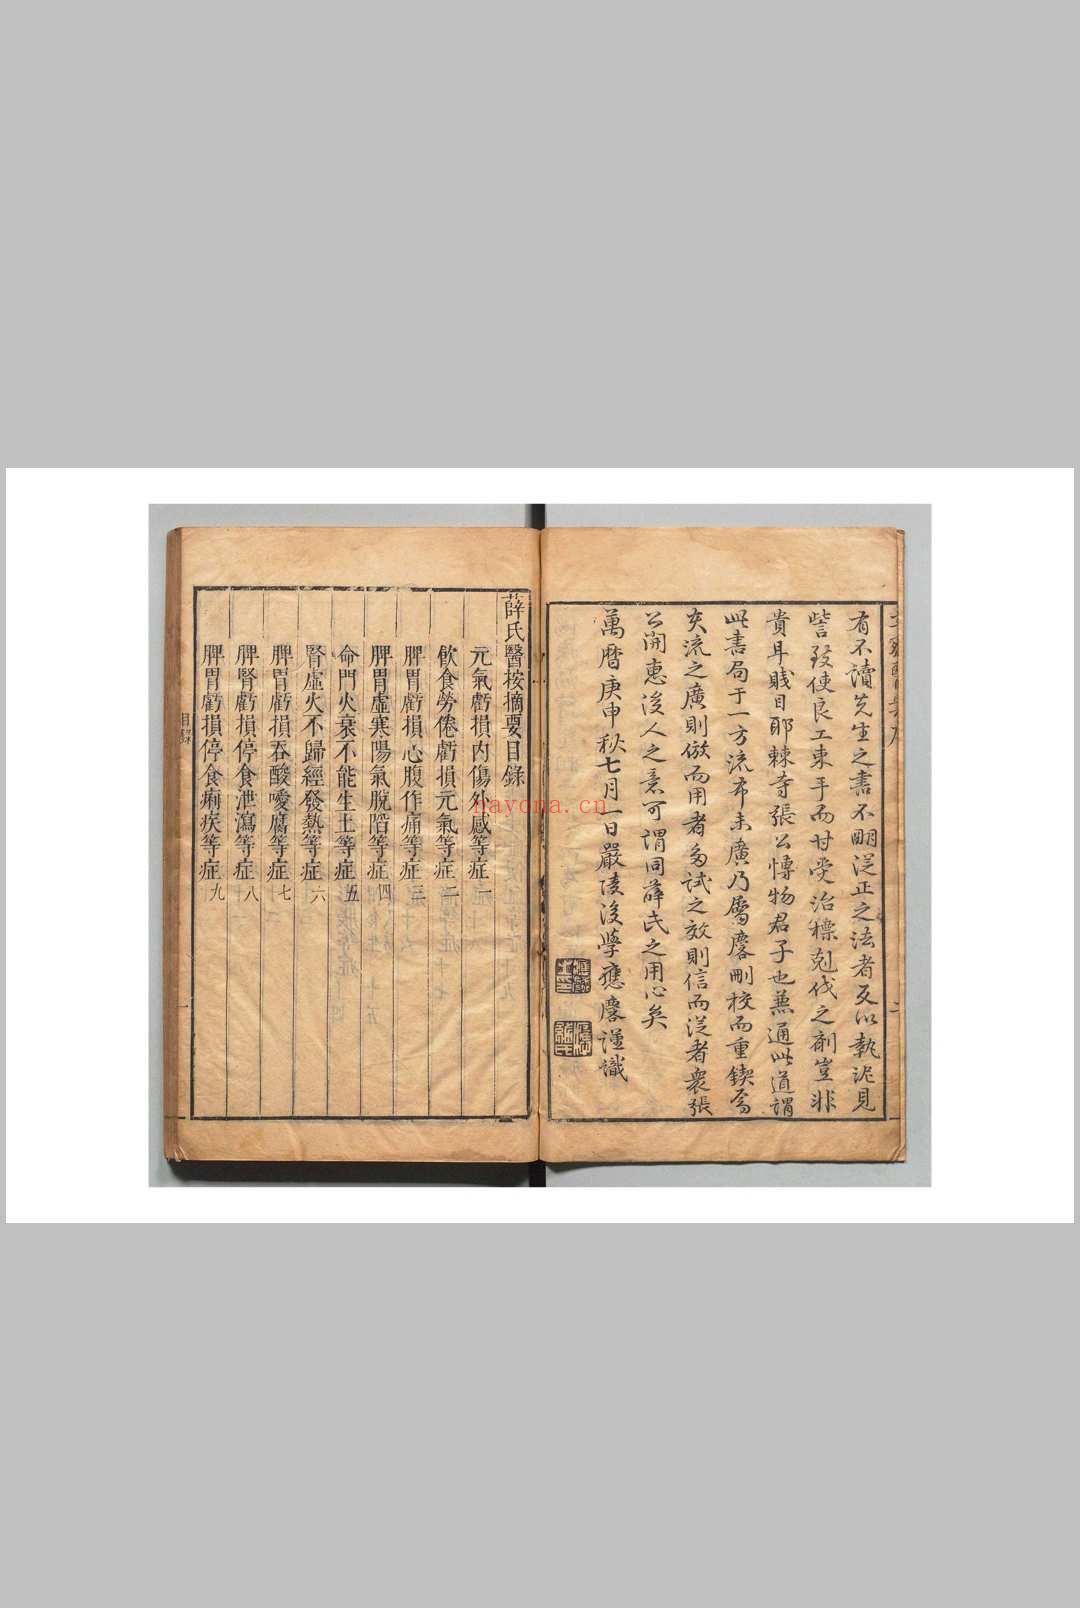 有不讀先生之書不明從正之法者反以執泥見
訾致使良工束手而甘受治標剋伐之劑豈非
貴耳賤目耶棘寺張公博物君子也兼通此道謂
此書局于一方流布未廣乃屬麐刪校而重鍥焉
矣流之廣則倣而用者多試之效則信而從者衆張
公開惠後人之意可謂同薛氏之用心矣
萬曆庚申秋七月一日嚴陵後學應麐謹識
薛氏醫按摘要目錄
元氣虧損內傷外感等症一
飲食勞倦虧損元氣等症二
脾胃虧損心腹作痛等症三
脾胃虛寒陽氣脫陷等症四
命門火衰不能生土等症五
腎虛火不歸經發熱等症六
脾胃虧損吞酸噯腐等症七
脾腎虧損停食泄瀉等症八
脾胃虧損停食痢疾等症九
目錄
一
nayona.cn